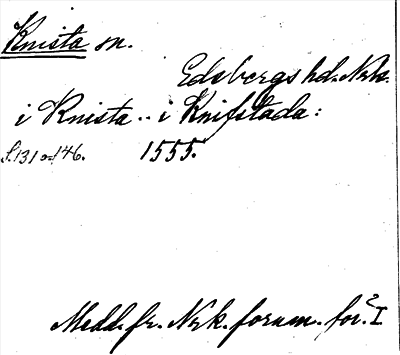 Knista sn.
Edsbergs hd. Nrk.
i Knista .. i Knifstada:
S. 131 o. 146. 1555.
Medd. fr. Nrk. fornm. för. I